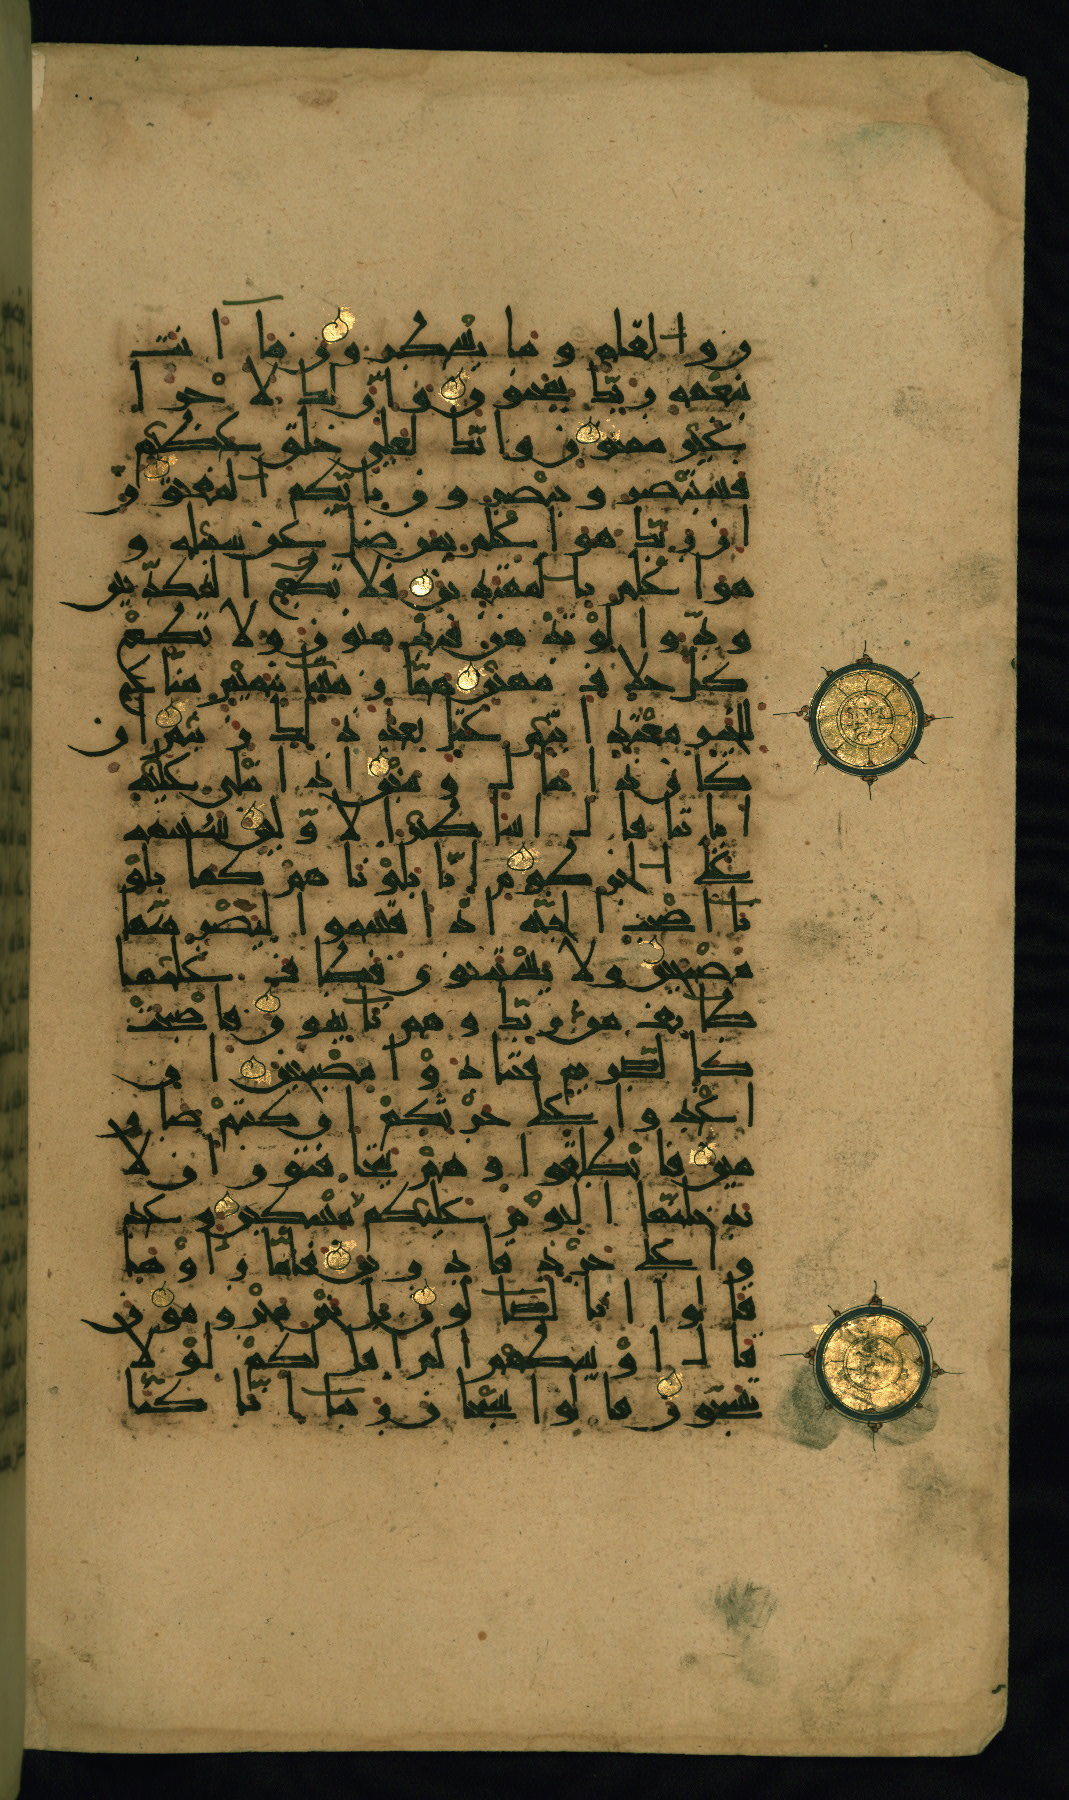 ن والقلم وما يسطرون ما انت
بنعمة ربك بمجنون وان لك لاجرا
غير ممنون وانك لعلى خلق عظيم
فستبصر ويبصرون باييكم المفتون
ان ربك هو اعلم بمن ضل عن سبيله و
هو اعلم بالمهتدين فلا تطع المكذبين
ودوا لو تدهن فيدهنون ولا تطع
كل حلاف مهين هماز مشاء بنميم مناع
للخير معتد اثيم عتل بعد ذلك زنيم ان
كان ذا مال وبنين اذا تتلى عليه
اياتنا قال اساطير الاولين سنسمه
على الخرطوم انا بلوناهم كما بلو
نا اصحب الجنة اذ اقسموا ليصرمنها
مصبحين ولا يستثنون فطاف عليها
طائف من ربك وهم نائمون فاصبحت
كالصريم فتنادوا مصبحين ان
اغدوا على حرثكم ان كنتم صار
مين فانطلقوا وهم يتخافتون ان لا
يدخلنها اليوم عليكم مسكين وغد
وا على حرد قادرين فلما راوها
قالوا انا لضالون بل نحن محرومون
قال اوسطهم الم اقل لكم لولا
تسبحون قالوا سبحان ربنا انا كنا